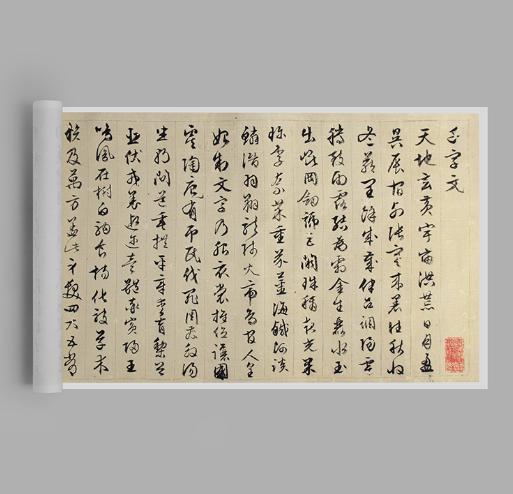 千字文
天地玄黃宇宙洪荒日月盈
昃辰宿列張寒來暑往秋收
冬藏閏餘成歲律召調陽雲
騰致雨露結為霜金生麗水玉
出崑岡劍號巨闕珠稱夜光果
珍李柰菜重芥薑海鹹河淡
鱗潛羽翔龍師火帝鳥官人皇
始制文字乃服衣裳推位讓國
虞陶唐有弔民伐罪周發殷湯
坐朝問道垂拱平章愛育黎首
臣伏戎羌遐邇壹體率賓歸王
鳴鳳在樹白駒食場化被草木
賴及萬方蓋此身髮四大五常